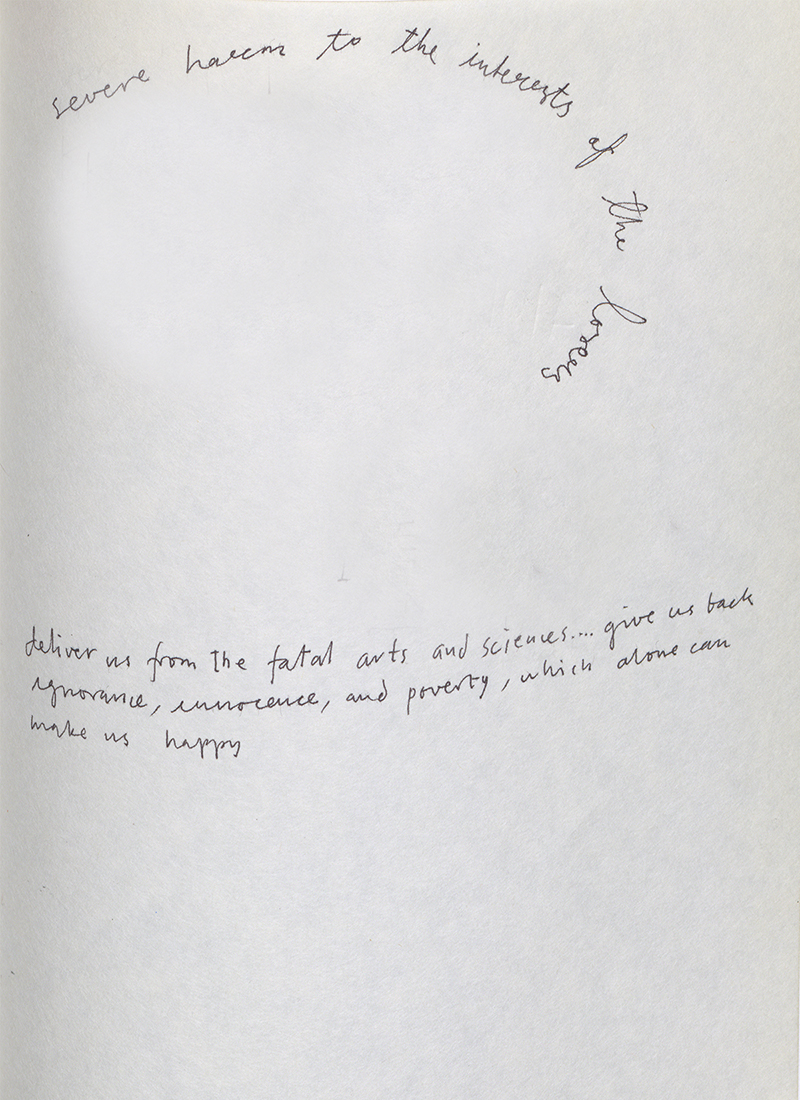 severe harm to the interests of the losers
deliver us from the fatal arts and sciences.... give us back
ignorance, innocence, and poverty, which alone can
make us happy